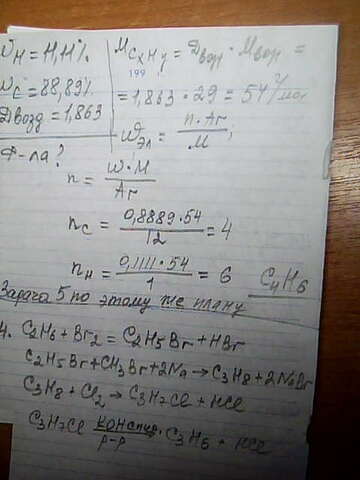 WH = 11,11%
WC = 88,89%
Dвозд = 1,863
Ф-ла?
MCxHy = Dвозд · Mвозд =
199
= 1,863 · 29 = 54 г/моль
Wэл = n · Ar / M ;
n = W · M / Ar
nC = 0,8889 · 54 / 12 = 4
nH = 0,1111 · 54 / 1 = 6 C4H6
Задача 5 по этому же плану
4. C2H6 + Br2 = C2H5Br + HBr
C2H5Br + CH3Br + 2Na → C3H8 + 2NaBr
C3H8 + Cl2 → C3H7Cl + HCl
C3H7Cl р-р C3H6 + HCl